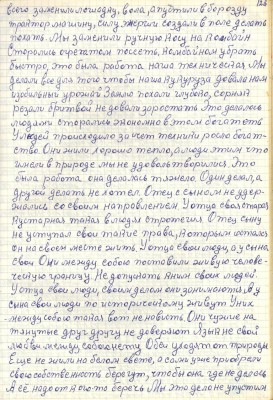 128
всего заменили лошадну, вола, а пустили в борозду
трактор машину, силу, энергии создали в поле делать
пахать. Мы заменили ручную косу на комбайн
Старались с рететом посеять комбайном убрать
быстро, это была работа наша техническая Мы
делали все для того чтобы наша кукуруза давала нам
изобильный урожай Землю пахали глубоко, сорняк
резали бритвой не давали зарастать Это делалось
людями старались экономно в этом богатеть
У людей происходило за чет техники росло богат-
ство Они жили хорошо тепло, а люди этим что
имели в природе мы не удовольствовались. Это
была работа она делалась тяжело Один делал, а
другой делать не хотел. Отец с сыном не удер-
жались со своим направлением. У отца своя старая
кустарная така в людях стратегия. Отец сыну
не уступал свои такие права, на которым остался
он на своем месте жить. У отца свои люди, а у сына
свои Они между собою поставили живую челове-
ческую границу. Не допускать к ним своих людей.
У отца свои люди, своим делом они занимаются. А у
сына свои люди по историческому живут У них
между собою такая вот не новисть Они чужие на
тянутые друг другу не доверяют Язык не свой
любви между собою нету. Оба уходят от природы
Еще не жили на белом свете, а сами уже приобрели
свою собственность берегут, чтобы она где не делась
А её надо от кого то беречь Мы это дело не упустим